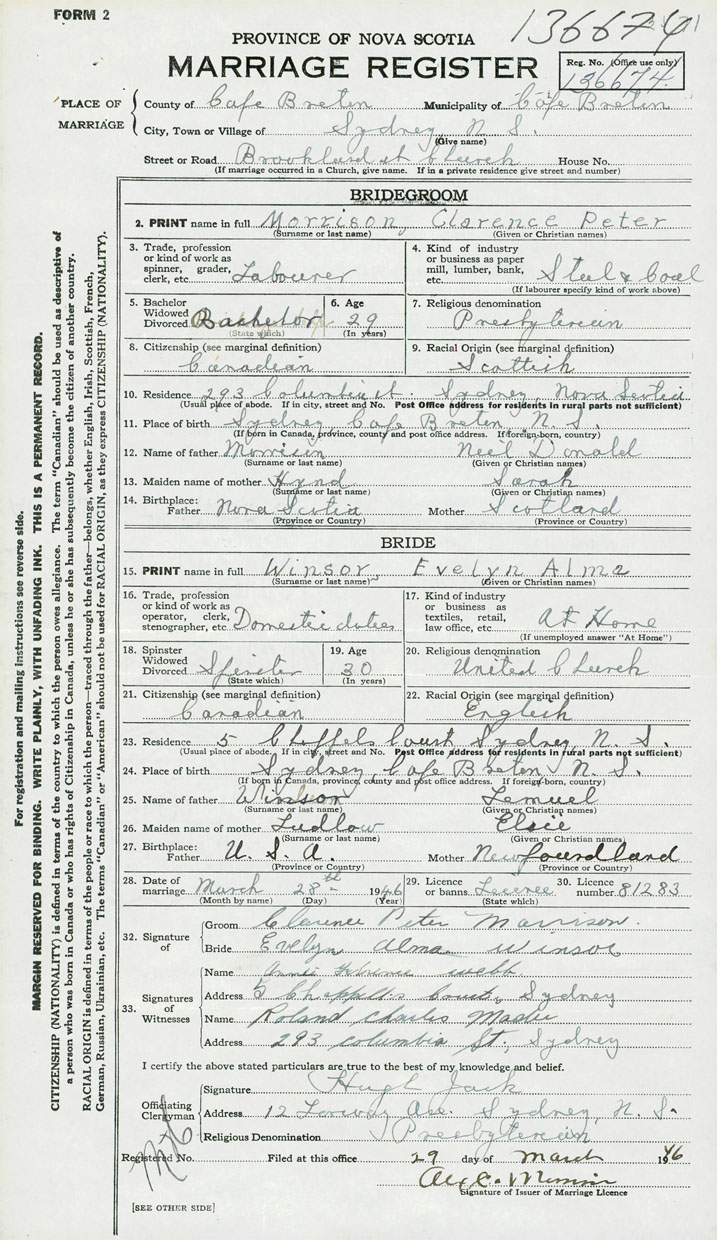 FORM 2
136674
PROVINCE OF NOVA SCOTIA
MARRIAGE REGISTER
Reg. No. (Office use only)
136674
PLACE OF MARRIAGE
County of Cape Breton Municipality of Cape Breton
City, Town or Village of Sydney, N. S.
(Give name)
Street or Road Brookland st Church House No.
(If marriage occurred in a Church, give name. If in a private residence give street and number)
BRIDEGROOM
2. PRINT name in full Morrison, Clarence Peter
(Surname or last name) (Given or Christian names)
3. Trade, profession or kind of work as spinner, grader, clerk, etc. Labourer
4. Kind of industry or business as paper mill, lumber, bank, etc. Steel & Coal
(If labourer specify kind of work above)
5. Bachelor Widowed Divorced Bachelor
(State which)
6. Age 29
(In years)
7. Religious denomination
Presbyterian
8. Citizenship (see marginal definition)
Canadian
9. Racial Origin (see marginal definition)
Scottish
10. Residence 293 Columbia st Sydney, Nova Scotia
(Usual place of abode. If in city, street and No. Post Office address for residents in rural parts not sufficient)
11. Place of birth Sydney Cape Breton, N. S.
(If born in Canada, province, county and post office address. If foreign-born, country)
12. Name of father Morrison Neil Donald
(Surname or last name) (Given or Christian names)
13. Maiden name of mother Hynd Sarah
(Surname or last name) (Given or Christian names)
14. Birthplace: Father Nova Scotia Mother Scotland
(Province or Country) (Province or Country)
BRIDE
15. PRINT name in full Winsor, Evelyn Alma
(Surname or last name) (Given or Christian names)
16. Trade, profession or kind of work as operator, clerk, stenographer, etc. Domestic duties
17. Kind of industry or business as textiles, retail, law office, etc. At Home
(If unemployed answer "At Home")
18. Spinster Widowed Divorced Spinster
(State which)
19. Age 30
(In years)
20. Religious denomination
United Church
21. Citizenship (see marginal definition)
Canadian
22. Racial Origin (see marginal definition)
English
23. Residence 5 Court Sydney, N. S.
(Usual place of abode. If in city, street and No. Post Office address for residents in rural parts not sufficient)
24. Place of birth Sydney, Cape Breton, N. S.
(If born in Canada, province, county and post office address. If foreign-born, country)
25. Name of father Winsor Lemuel
(Surname or last name) (Given or Christian names)
26. Maiden name of mother Ludlow Elsie
(Surname or last name) (Given or Christian names)
27. Birthplace: Father U. S. A. Mother Newfoundland
(Province or Country) (Province or Country)
28. Date of marriage March 28th 1946
(Month by name) (Day) (Year)
29. Licence or banns License
(State which)
30. Licence number 81283
32. Signature of
Groom Clarence Peter Morrison.
Bride Evelyn Alma Winsor
33. Signatures of Witnesses
Name Annie Webb
Address 5 Court, Sydney
Name Roland Charles
Address 293 Columbia St, Sydney
I certify the above stated particulars are true to the best of my knowledge and belief.
Officiating Clergyman
Signature Hugh Jack
Address 12 Ave. Sydney, N. S.
Religious Denomination Presbyterian
Registered No. Filed at this office 29 day of March 1946
Signature of Issuer of Marriage Licence
[SEE OTHER SIDE]
For registration and mailing instructions see reverse side.
MARGIN RESERVED FOR BINDING. WRITE PLAINLY, WITH UNFADING INK. THIS IS A PERMANENT RECORD.
CITIZENSHIP (NATIONALITY) is defined in terms of the country to which the person owes allegiance. The term "Canadian" should be used as descriptive of
a person who was born in Canada or who has rights of Citizenship in Canada, unless he or she has subsequently become the citizen of another country.
RACIAL ORIGIN is defined in terms of the people or race to which the person—traced through the father—belongs, whether English, Irish, Scottish, French,
German, Russian, Ukrainian, etc. The terms "Canadian" or "American" should not be used for RACIAL ORIGIN, as they express CITIZENSHIP (NATIONALITY).